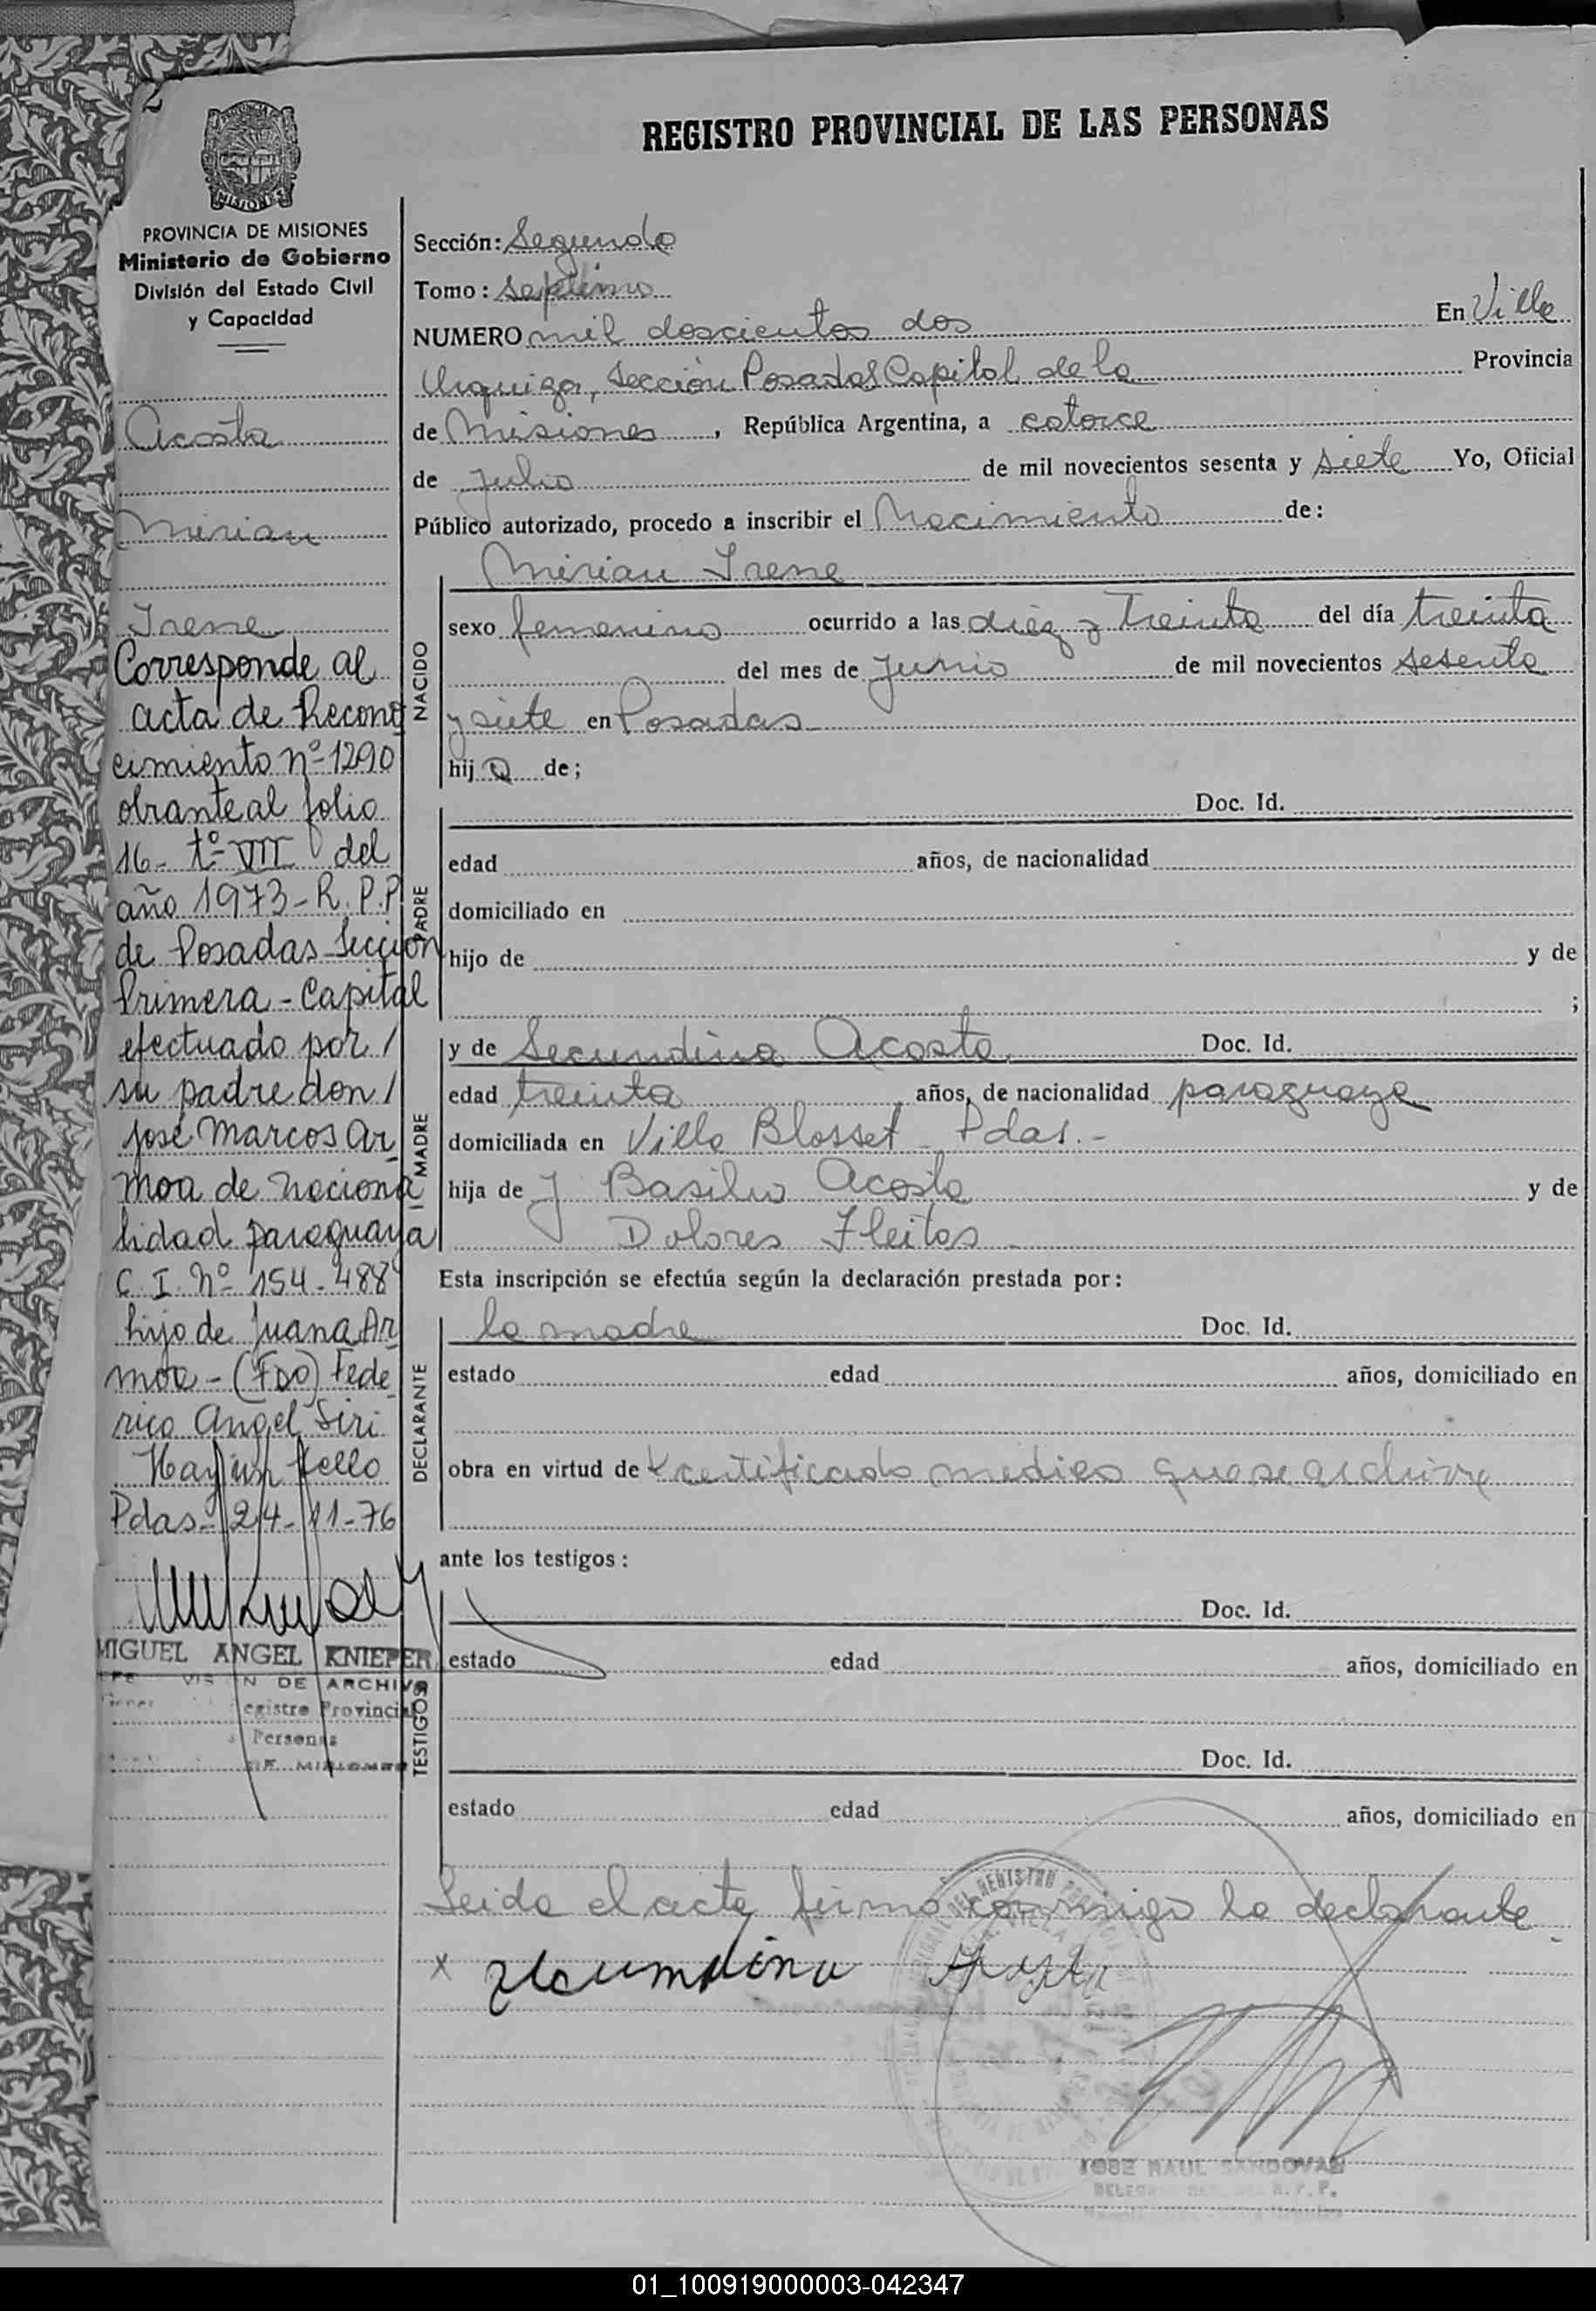 2
REGISTRO PROVINCIAL DE LAS PERSONAS
MISIONES
PROVINCIA DE MISIONES
Ministerio de Gobierno
División del Estado Civil
y Capacidad
Acosta
Mirian
Irene
Corresponde al
acta de Recono
cimiento nº 1290
obrante al folio
16 - tº VII del
año 1973 - R. P. P.
de Posadas - Sección
Primera - Capital
efectuado por /
su padre don /
José Marcos Ar
moa de naciona
lidad paraguaya
C. I. Nº 154.488
hijo de Juana Ar
moa - (FDO) Fede
rico Angel Siri
Hay un sello
Pdas - 24-11-76
MIGUEL ANGEL KNIEPER
DE ARCHIVO
Registro Provincial
Personas
DE MISIONES
Sección: Segunda
Tomo: septimo
NUMERO mil doscientos dos En Villa
Urquiza, Sección Posadas Capital de la Provincia
de Misiones, República Argentina, a catorce
de Julio de mil novecientos sesenta y siete Yo, Oficial
Público autorizado, procedo a inscribir el Nacimiento de:
NACIDO
Mirian Irene
sexo femenino ocurrido a las diez y treinta del día treinta
del mes de Junio de mil novecientos sesenta
y siete en Posadas
hija de;
PADRE
Doc. Id.
edad años, de nacionalidad
domiciliado en
hijo de y de
;
MADRE
y de Secundina Acosta Doc. Id.
edad treinta años, de nacionalidad paraguaya
domiciliada en Villa Blosset - Pdas.-
hija de J Basilio Acosta y de
Dolores Fleitas
Esta inscripción se efectúa según la declaración prestada por:
DECLARANTE
la madre Doc. Id.
estado edad años, domiciliado en
obra en virtud de certificado medico que se archiva
ante los testigos:
TESTIGOS
Doc. Id.
estado edad años, domiciliado en
Doc. Id.
estado edad años, domiciliado en
Leida el acta firma conmigo la declarante
x Secundina Acosta
JOSE RAUL SANDOVAL
R. P. P.
01_100919000003-042347